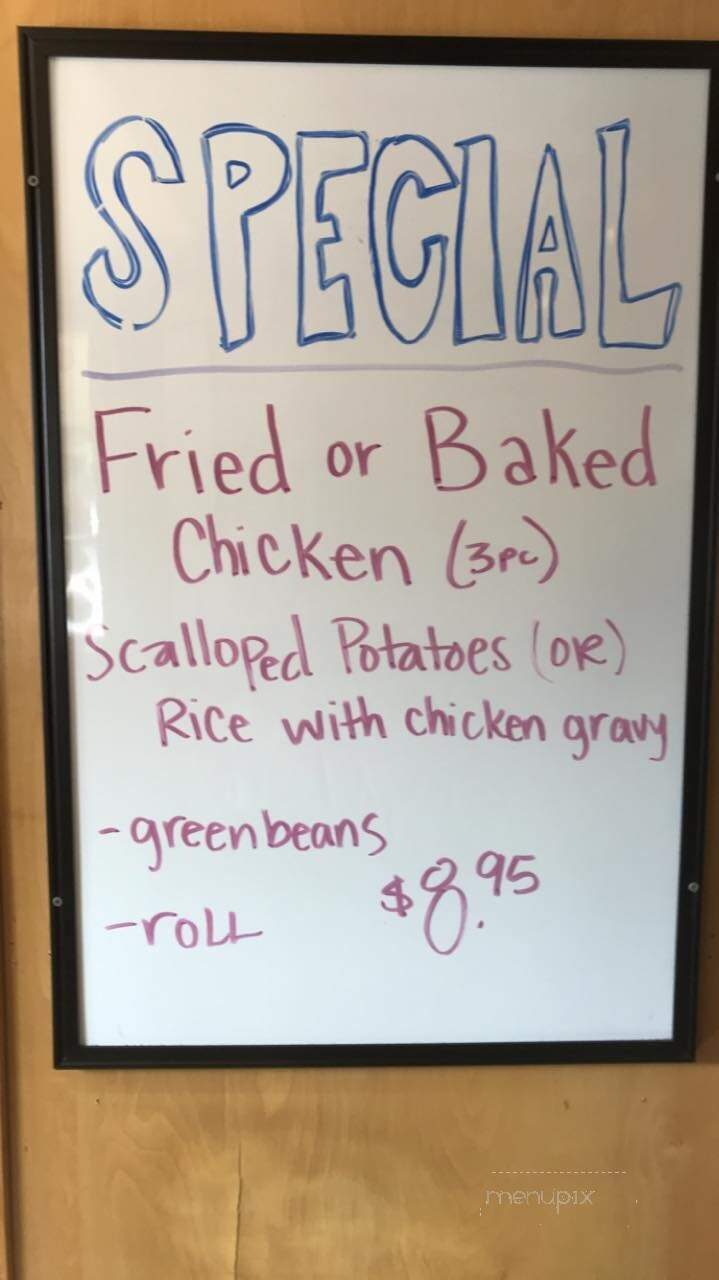 SPECIAL
Fried or Baked
Chicken (3pc)
Scalloped Potatoes (OR)
Rice with chicken gravy
-greenbeans
$8.95
-roll
menupix